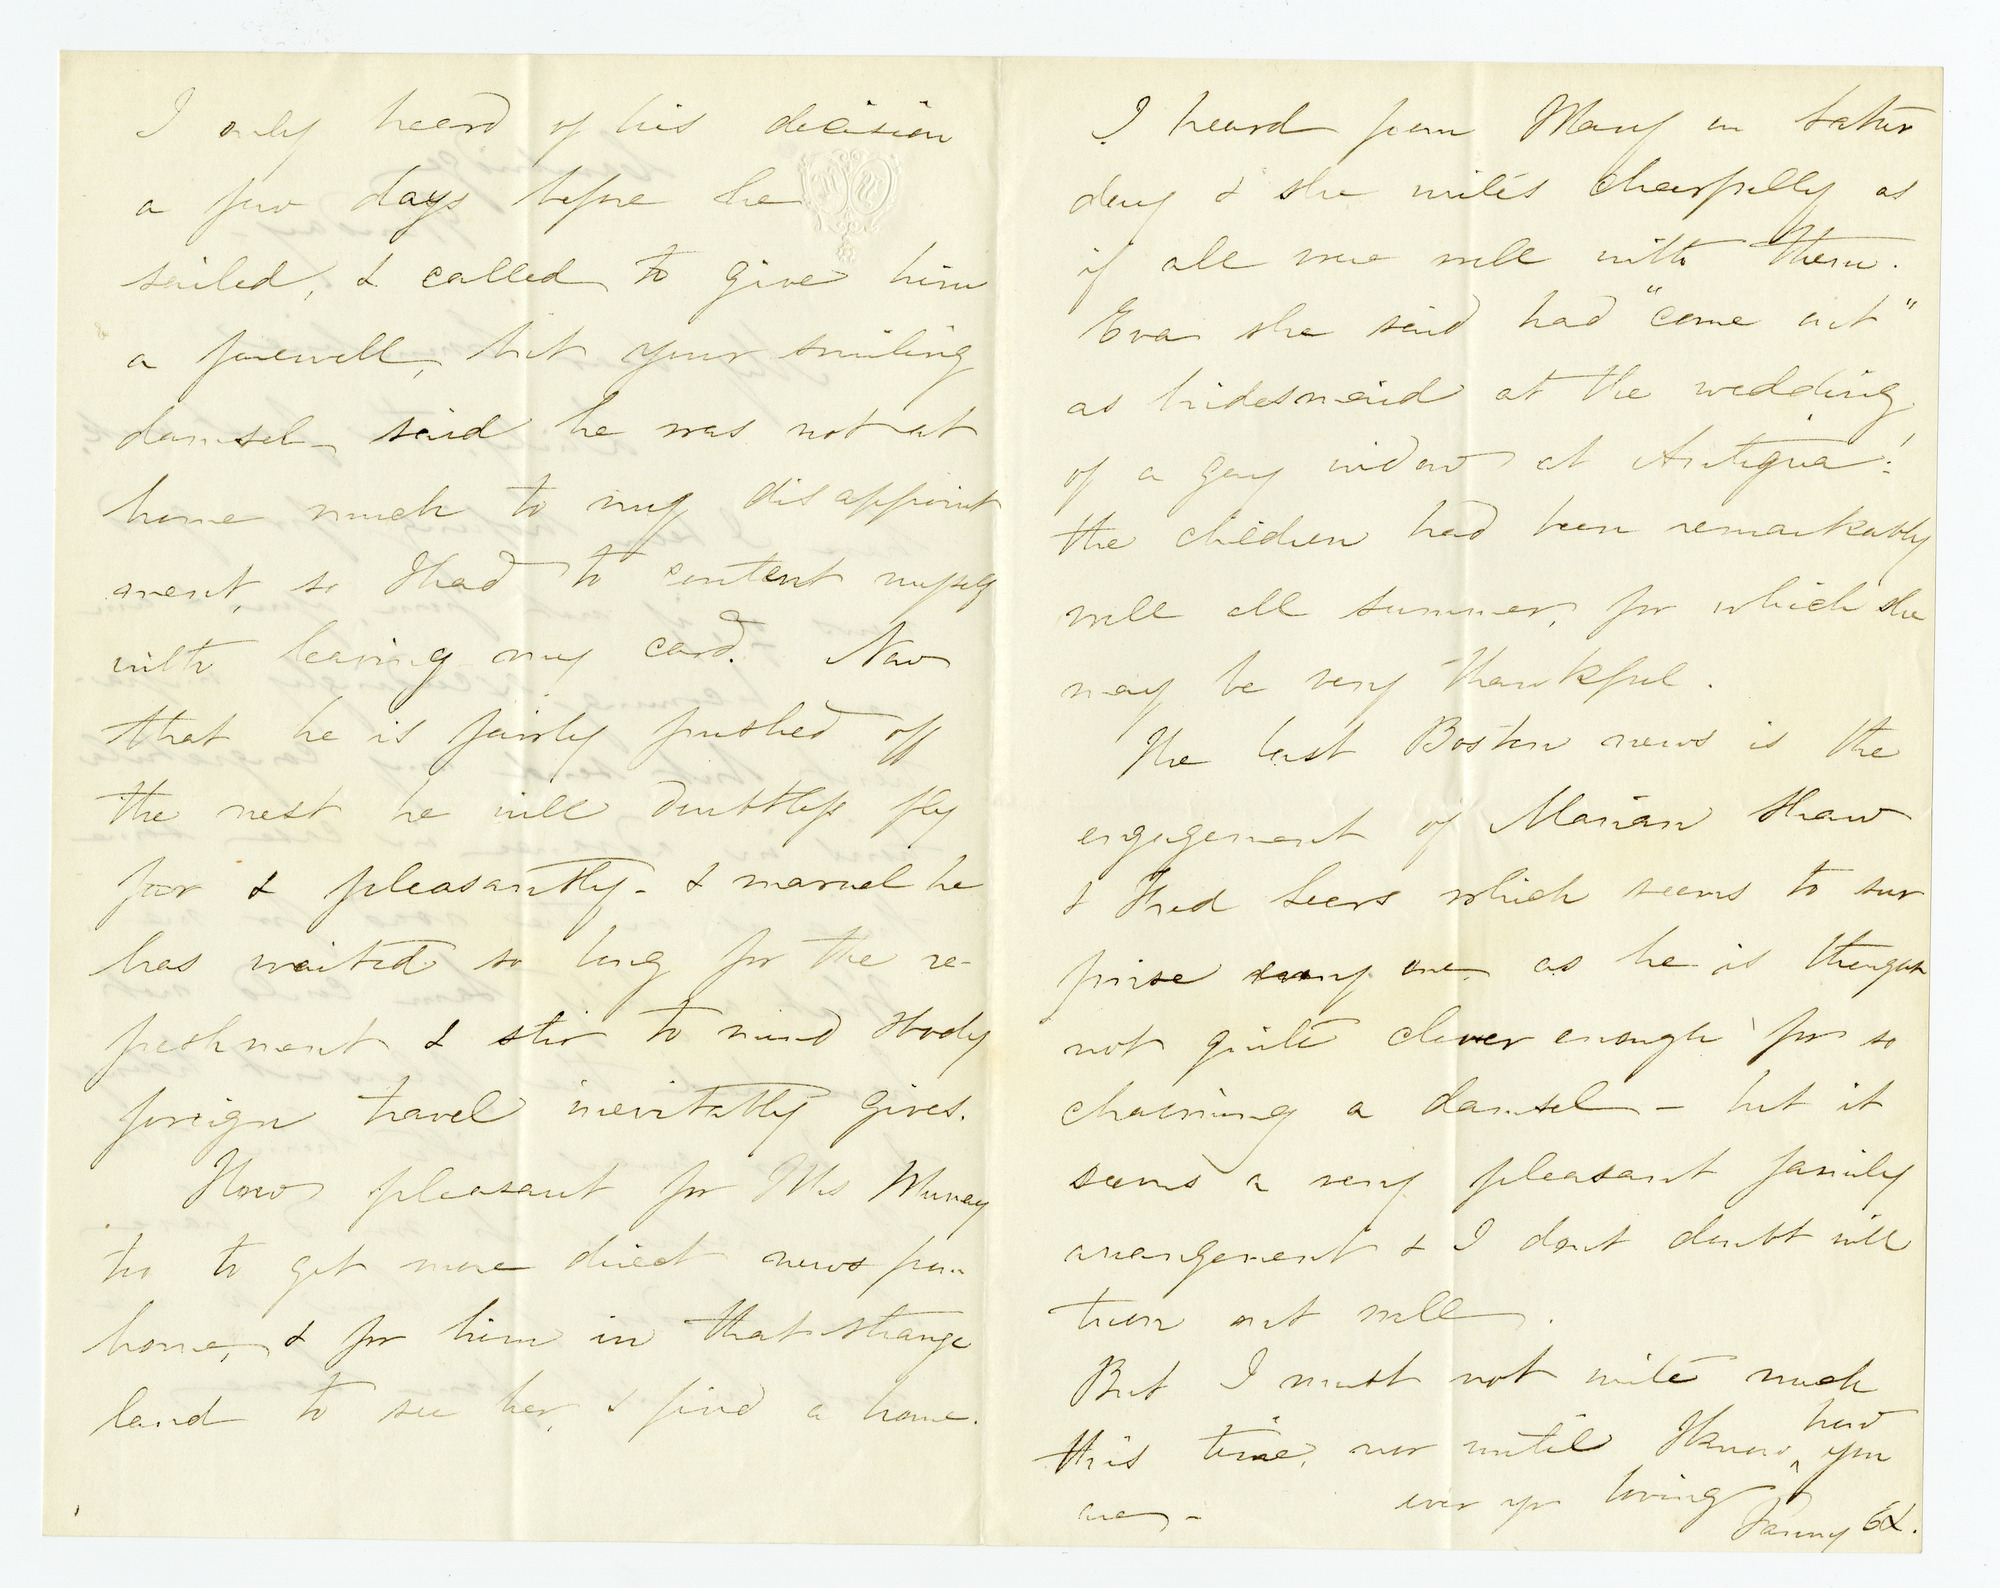 I only heard of his decision
a few days before he
sailed, & called to give him
a farewell, but your smiling
damsel said he was not at
home much to my disappoint
ment, so I had to content myself
with leaving my card. Now
that he is fairly pushed off
the nest he will doubtless fly
far & pleasantly - & marvel he
has waited so long for the re-
freshment & stir to mind & body
foreign travel inevitably gives.
How pleasant for Mrs Murray
too to get more direct news from
home, & for him in that strange
land to see her, & find a home.
I heard from Mary on Satur
day & she writes cheerfully as
if all were well with them.
Eva she said had "come out"
as bridesmaid at the wedding
of a gay widow at Antigua!
the children had been remarkably
well all summer, for which she
may be very thankful.
The last Boston news is the
engagement of Marian Shaw
& Fred Sears which seems to sur
prise many one as he is thought
not quite clever enough for so
charming a damsel - but it
seems a very pleasant family
arrangement & I dont doubt will
turn out well.
But I must not write much
this time, nor until I know how you
are - ever yr loving
Fanny EL.